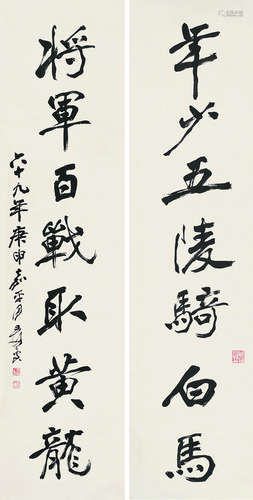 年少五陵騎白馬
將軍百戰取黃龍
六十九年庚申嘉平月